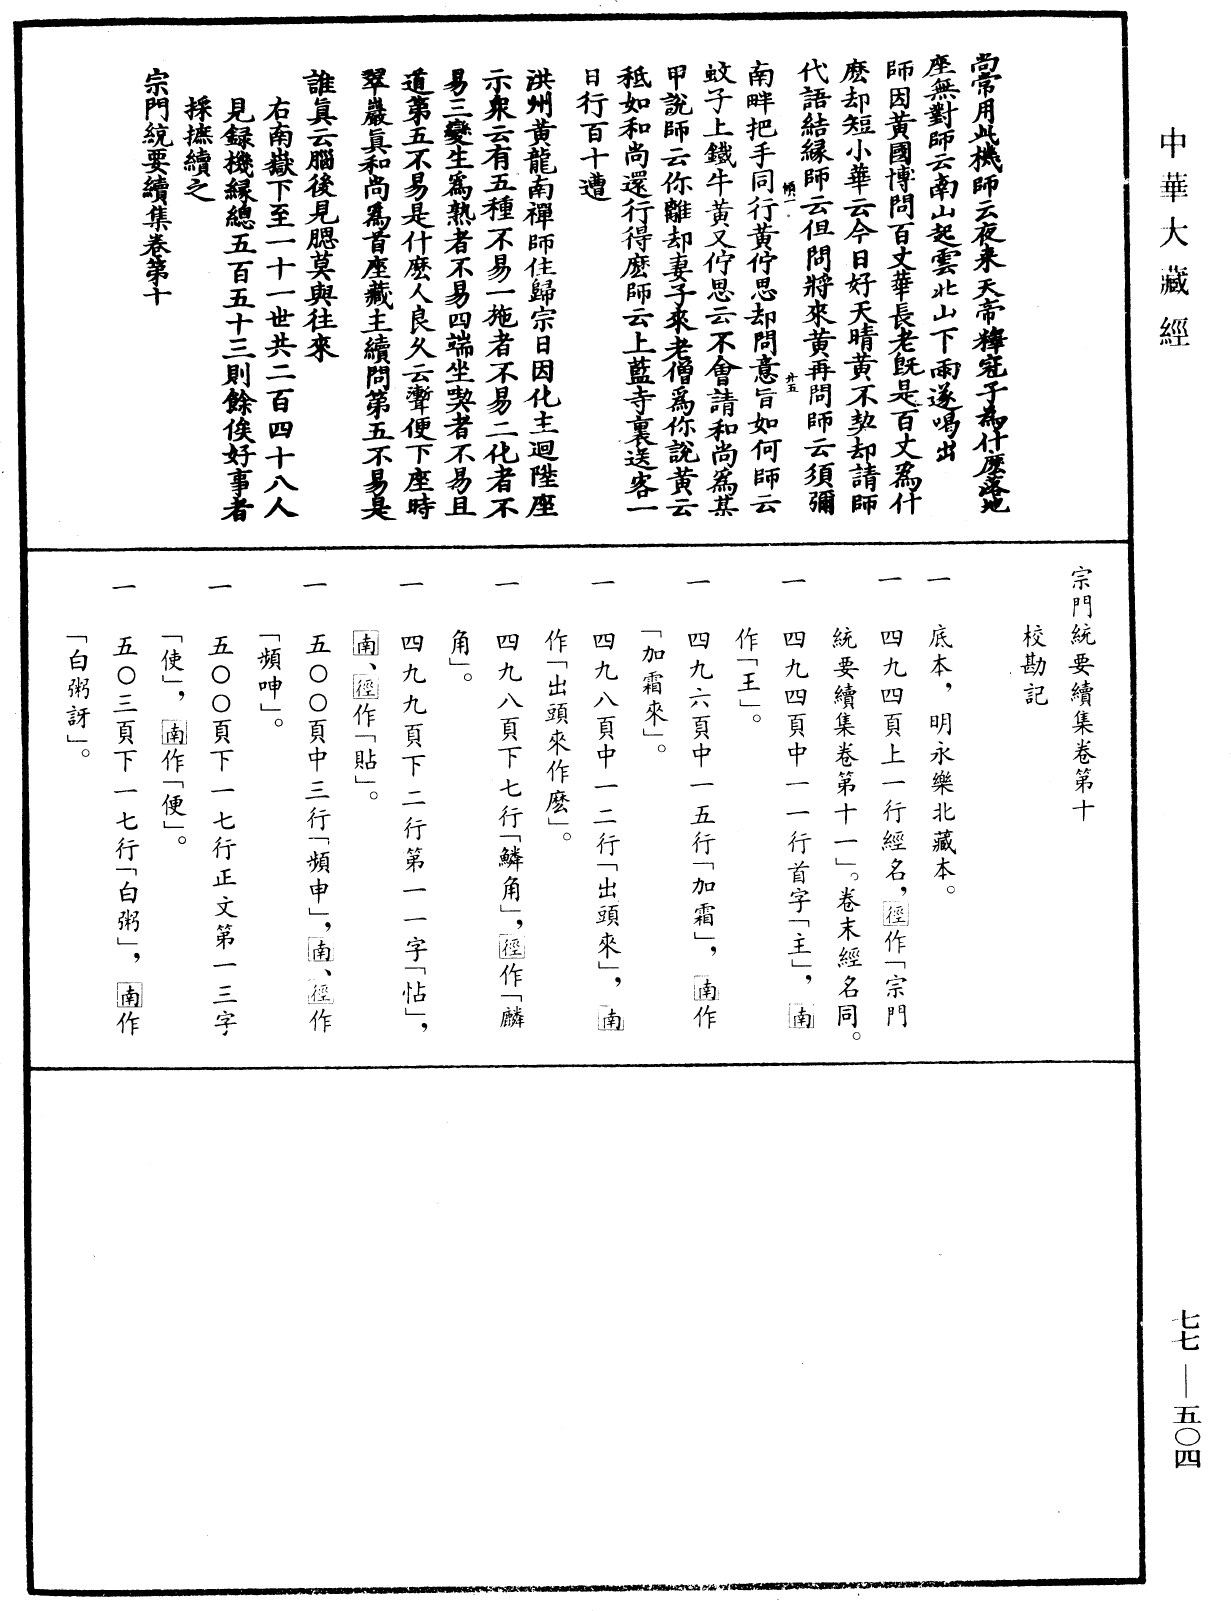 中華大藏經
尚常用此機師云夜來天帝釋冠子為什麼落地
座無對師云南山起雲北山下雨遂喝出
師因黃國博問百丈華長老旣是百丈為什
麼却短小華云今日好天晴黃不契却請師
代語結縁師云但問將來黃再問師云須彌
南畔把手同行黃佇思却問意旨如何師云
蚊子上鐵牛黃又佇思云不會請和尚爲某
甲說師云你離却妻子來老僧爲你說黃云
秖如和尚還行得麽師云上藍寺裏送客一
日行百十遭
洪州黃龍南禪師住歸宗日因化主迴陞座
示衆云有五種不易一施者不易二化者不
易三變生爲熟者不易四端坐喫者不易且
道第五不易是什麽人良久云聻便下座時
翠巖眞和尚爲首座藏主續問第五不易是
誰眞云腦後見腮莫與往來
右南嶽下至一十一世共二百四十八人
見録機縁總五百五十三則餘俟好事者
採摭續之
宗門統要續集卷第十
宗門統要續集卷第十
校勘記
一 底本，明永樂北藏本。
一 四九四頁上一行經名，徑作「宗門
統要續集卷第十一」。卷末經名同。
一 四九四頁中一一行首字「主」，南
作「王」。
一 四九六頁中一五行「加霜」，南作
「加霜來」。
一 四九八頁中一二行「出頭來」，南
作「出頭來作麽」。
一 四九八頁下七行「鱗角」，徑作「麟
角」。
一 四九九頁下二行第一一字「怗」，
南、徑作「貼」。
一 五〇〇頁中三行「頻申」，南、徑作
「頻呻」。
一 五〇〇頁下一七行正文第一三字
「使」，南作「便」。
一 五〇三頁下一七行「白粥」，南作
「白粥訝」。
七七—五〇四